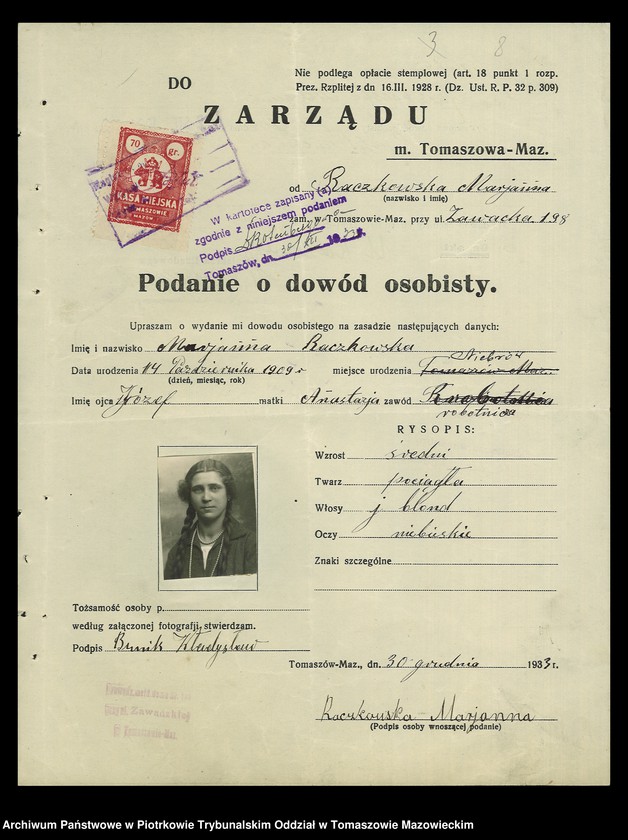 3 8
Nie podlega opłacie stemplowej (art. 18 punkt 1 rozp.
Prez. Rzplitej z dn 16.III. 1928 r. (Dz. Ust. R. P. 32 p. 309)
DO
ZARZĄDU
m. Tomaszowa-Maz.
70 gr.
KASA MIEJSKA
TOMASZOWIE
MAZOW.
od Raczkowska Marjanna
(nazwisko i imię)
zam. w Tomaszowie-Maz. przy ul. Zawacka 198
W kartotece zapisany (a)
zgodnie z niniejszem podaniem
Podpis
Tomaszów, dn. 30/XII 1933 r.
Podanie o dowód osobisty.
Upraszam o wydanie mi dowodu osobistego na zasadzie następujących danych:
Imię i nazwisko Marjanna Raczkowska
Data urodzenia 14 Października 1909 r miejsce urodzenia Tomaszów Maz. Niebrów
(dzień, miesiąc, rok)
Imię ojca Józef matki Anastazja zawód
robotnica
RYSOPIS:
Wzrost średni
Twarz pociągła
Włosy j blond
Oczy niebieskie
Znaki szczególne
Tożsamość osoby p.
według załączonej fotografji stwierdzam.
Podpis Bernik Władysław
Tomaszów-Maz., dn. 30 grudnia 1933 r.
Raczkowska Marjanna
(Podpis osoby wnoszącej podanie)
Zawackiej
w Tomaszowie-Maz.
Archiwum Państwowe w Piotrkowie Trybunalskim Oddział w Tomaszowie Mazowieckim